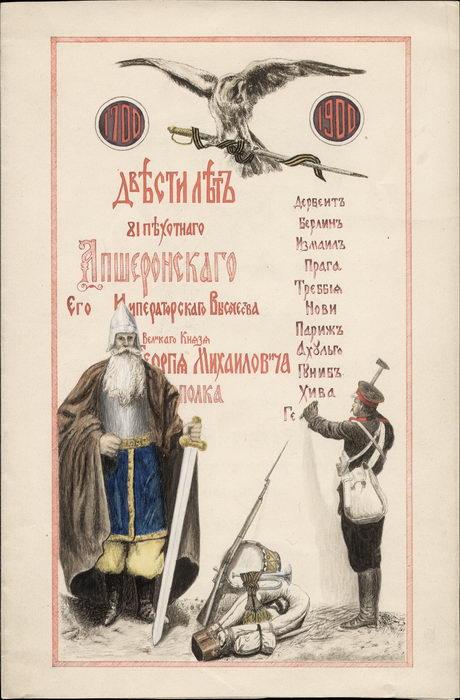 1700
1900
Двѣсти лѣтъ
81 пѣхотнаго
Апшеронскаго
Его Императорскаго Высочества
Великаго Князя
Георгія Михаиловича
полка
Дербентъ
Берлинъ
Измаилъ
Прага
Треббія
Нови
Парижъ
Ахульго
Гунибъ
Хива
Ге